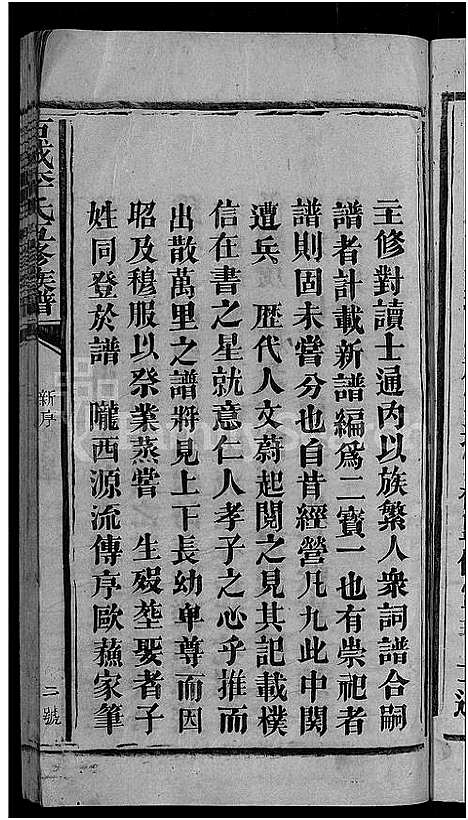 主修對讀士通內以族繁人衆詞譜合嗣
譜者計載新譜編爲二寶一也有祟祀者
譜則固未嘗分也自昔經營凡九此中閱
遭兵 歷代人文蔚起閱之見其記載樸
信在書之星就意仁人孝子之心乎推而
出散萬里之譜將見上下長幼卑尊而因
昭及穆服以祭業蒸嘗 生歿塟娶者子
姓同登於譜 隴西源流傳序歐蘇家筆
李氏 修族譜
新序
二號